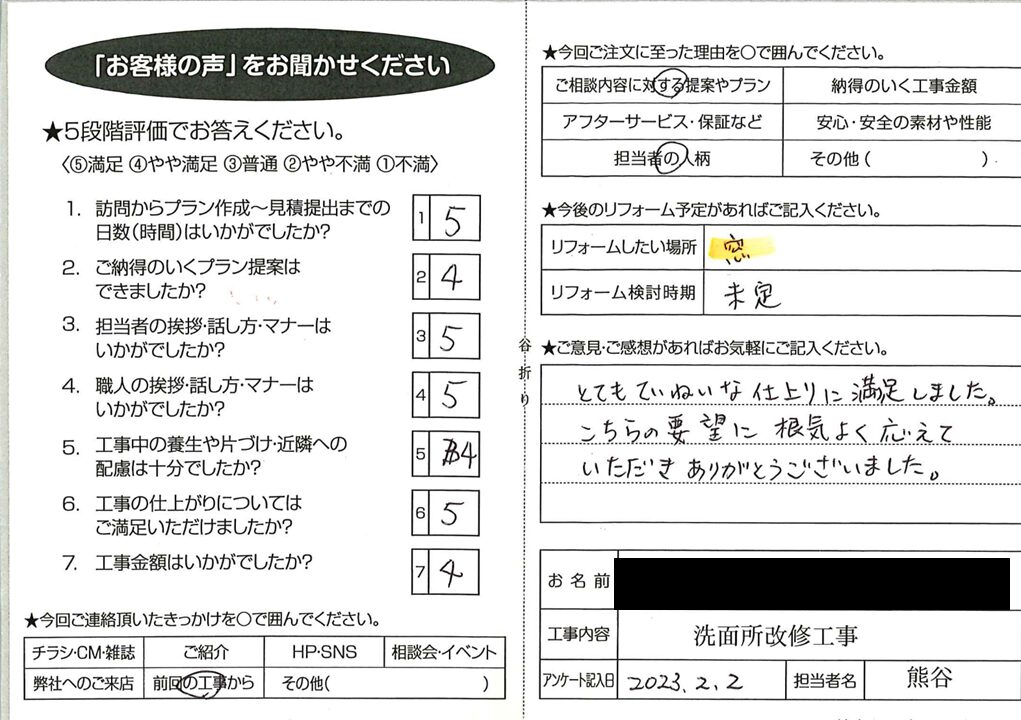 「お客様の声」をお聞かせください
★5段階評価でお答えください。
〈⑤満足 ④やや満足 ③普通 ②やや不満 ①不満〉
1. 訪問からプラン作成～見積提出までの
日数(時間)はいかがでしたか?
1 5
2. ご納得のいくプラン提案は
できましたか?
2 4
3. 担当者の挨拶・話し方・マナーは
いかがでしたか?
3 5
4. 職人の挨拶・話し方・マナーは
いかがでしたか?
4 5
5. 工事中の養生や片づけ・近隣への
配慮は十分でしたか?
5 4
6. 工事の仕上がりについては
ご満足いただけましたか?
6 5
7. 工事金額はいかがでしたか?
7 4
★今回ご連絡頂いたきっかけを○で囲んでください。
チラシ・CM・雑誌 ご紹介 HP・SNS 相談会・イベント
弊社へのご来店 前回の工事から その他( )
谷折り
★今回ご注文に至った理由を○で囲んでください。
ご相談内容に対する提案やプラン 納得のいく工事金額
アフターサービス・保証など 安心・安全の素材や性能
担当者の人柄 その他( )
★今後のリフォーム予定があればご記入ください。
リフォームしたい場所 窓
リフォーム検討時期 未定
★ご意見・ご感想があればお気軽にご記入ください。
とてもていねいな仕上りに満足しました。
こちらの要望に根気よく応えて
いただきありがとうございました。
お名前
工事内容 洗面所改修工事
アンケート記入日 2023.2.2 担当者名 熊谷